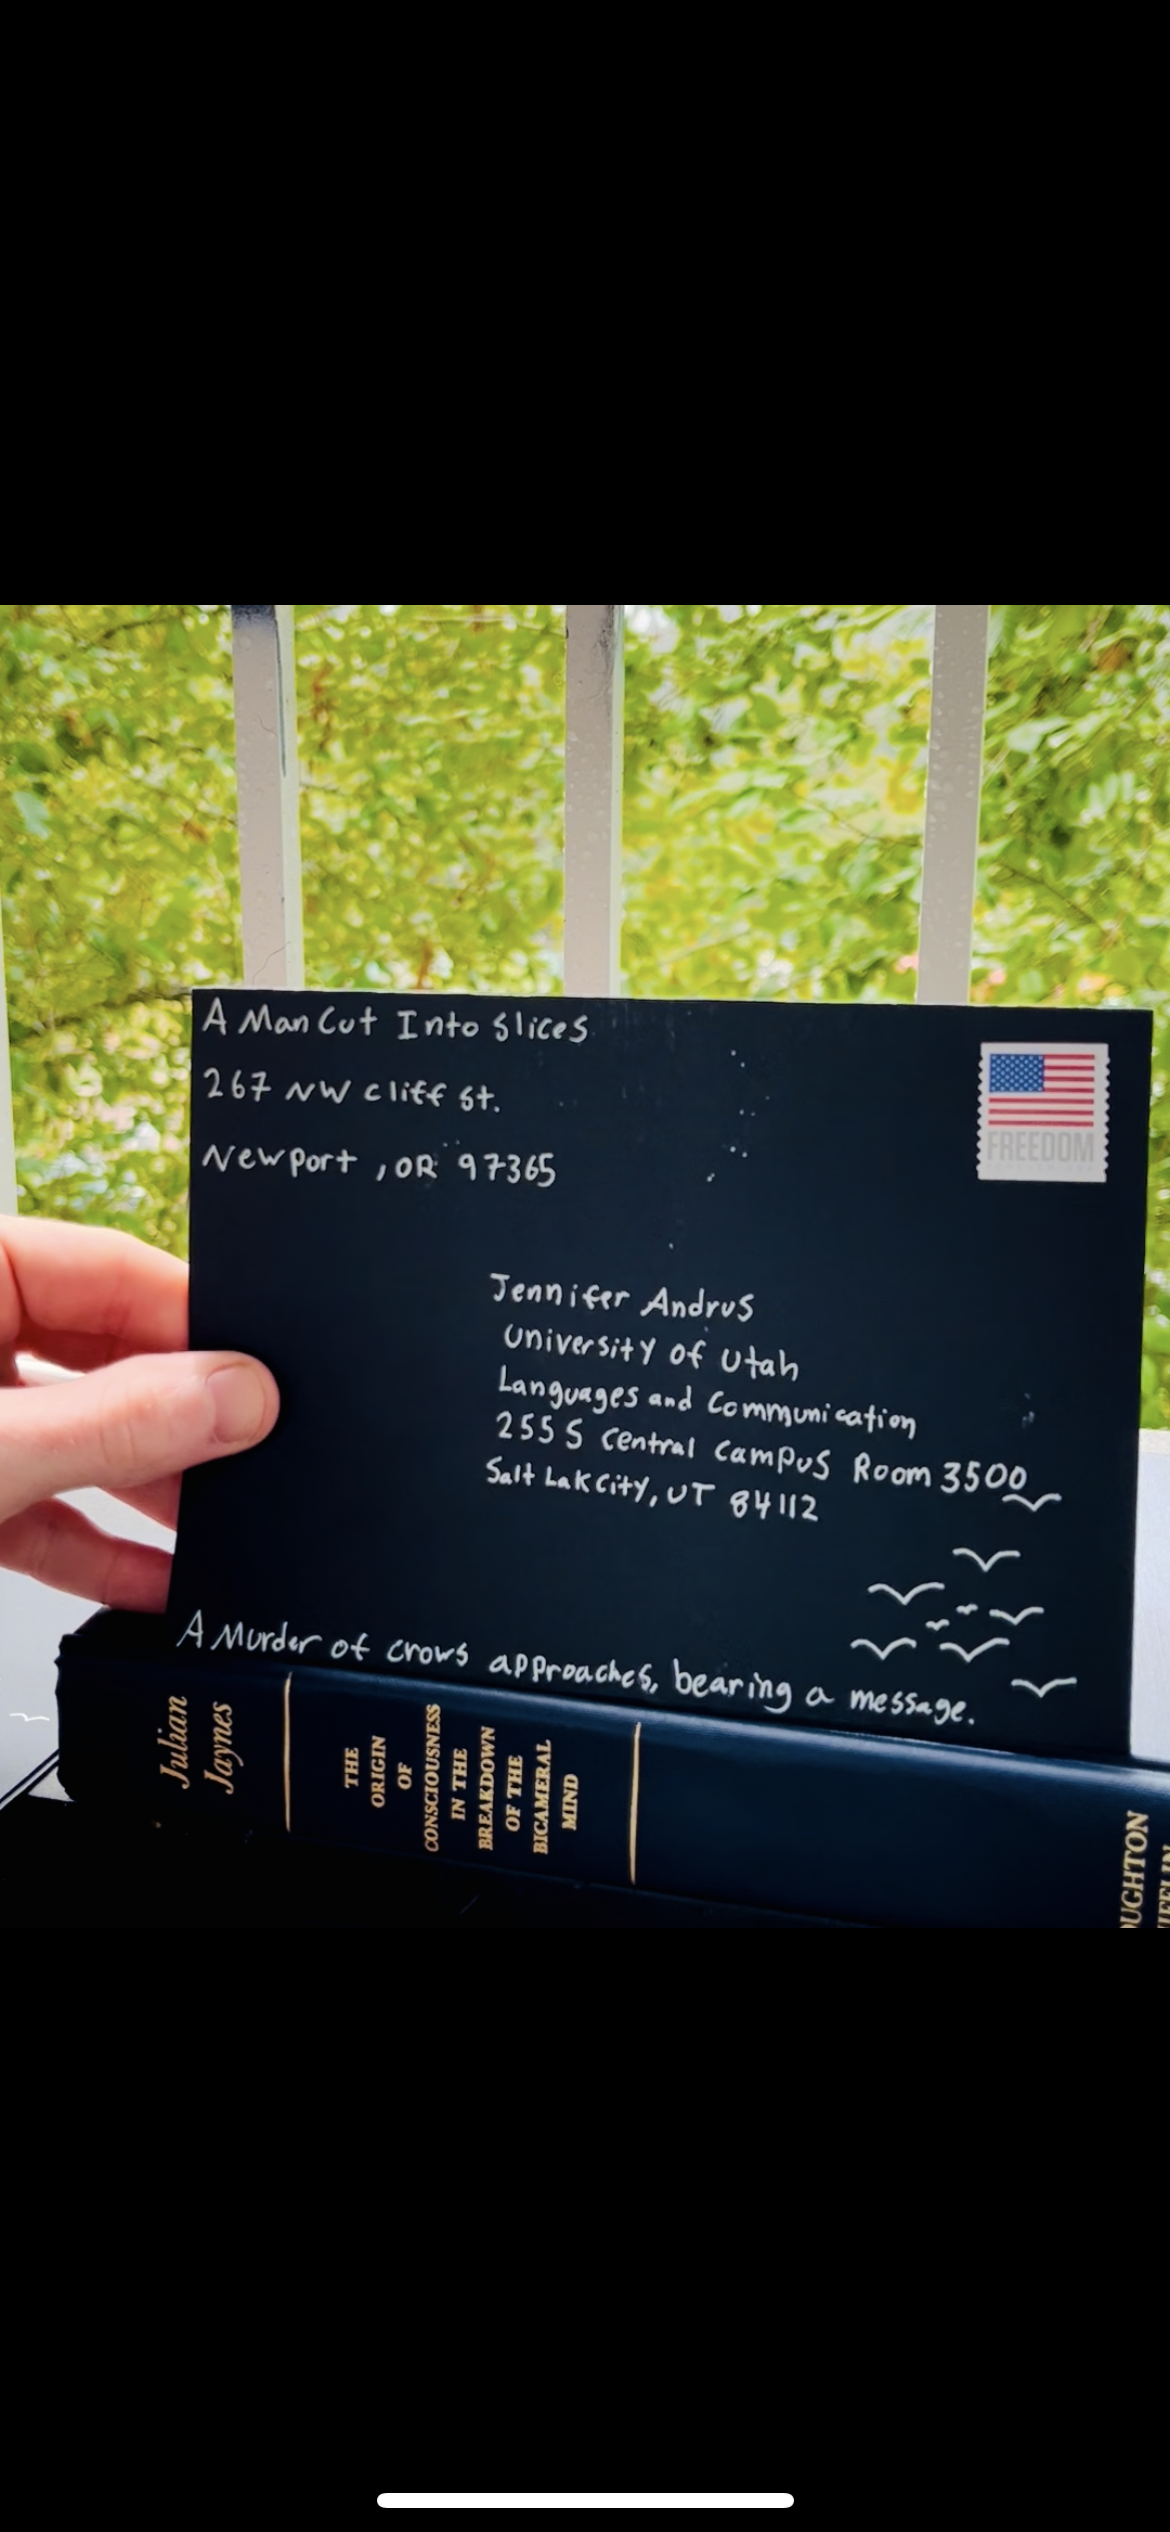 A Man Cut Into Slices
267 NW Cliff St.
Newport, OR 97365
FREEDOM
Jennifer Andrus
University of Utah
Languages and Communication
255 S Central Campus Room 3500
Salt Lak City, UT 84112
A Murder of crows approaches, bearing a message.
Julian
Jaynes
THE
ORIGIN
OF
CONSCIOUSNESS
IN THE
BREAKDOWN
OF THE
BICAMERAL
MIND
OUGHTON